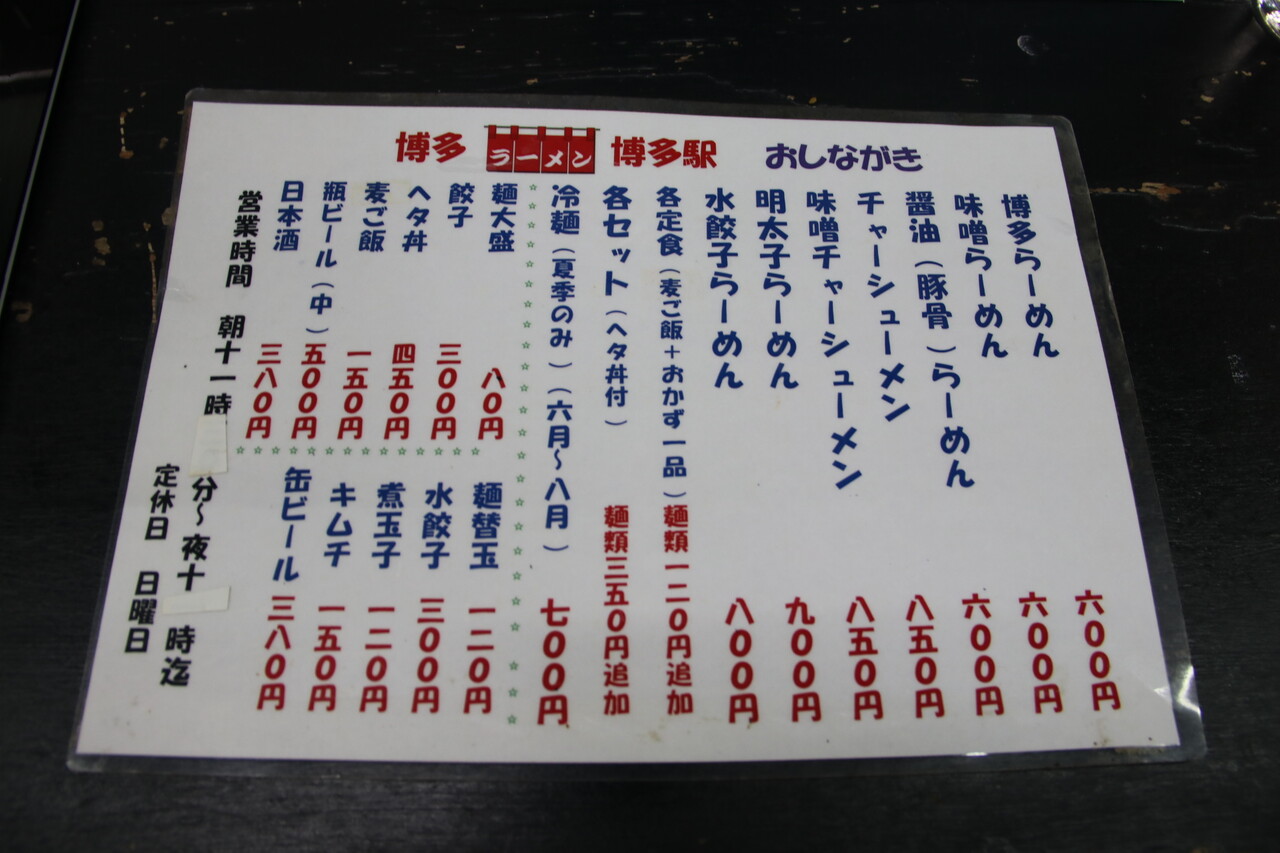 博多 ラーメン 博多駅 おしながき
博多らーめん 六〇〇円
味噌らーめん 六〇〇円
醤油（豚骨）らーめん 六〇〇円
チャーシューメン 八五〇円
味噌チャーシューメン 八五〇円
明太子らーめん 九〇〇円
水餃子らーめん 八〇〇円
各定食（麦ご飯＋おかず一品）麺類一二〇円追加
各セット（ヘタ丼付）麺類三五〇円追加
冷麺（夏季のみ）（六月〜八月） 七〇〇円
麺大盛 八〇円
餃子 三〇〇円
ヘタ丼 四五〇円
麦ご飯 一五〇円
瓶ビール（中） 五〇〇円
日本酒 三八〇円
麺替玉 一二〇円
水餃子 三〇〇円
煮玉子 一二〇円
キムチ 一五〇円
缶ビール 三八〇円
営業時間 朝十一時 分〜夜十 時迄
定休日 日曜日